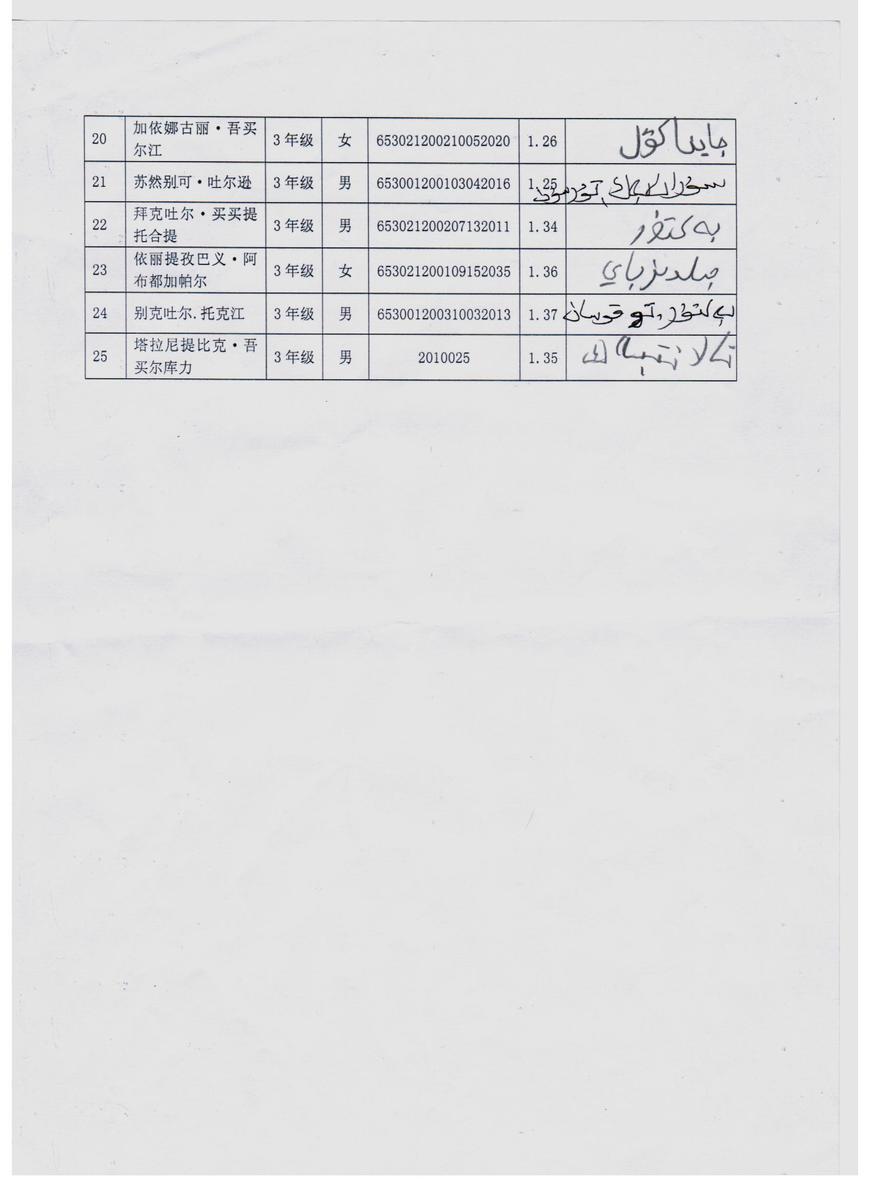 20 加依娜古丽·吾买 3年级 女 653021200210052020 1.26 جايناگۈل
尔江
21 苏然别可·吐尔逊 3年级 男 653001200103042016 1.25
22 拜克吐尔·买买提 3年级 男 653021200207132011 1.34 بەكتۇر
托合提
23 依丽提孜巴义·阿 3年级 女 653021200109152035 1.36
布都加帕尔
24 别克吐尔.托克江 3年级 男 653001200310032013 1.37
25 塔拉尼提比克·吾 3年级 男 2010025 1.35
买尔库力